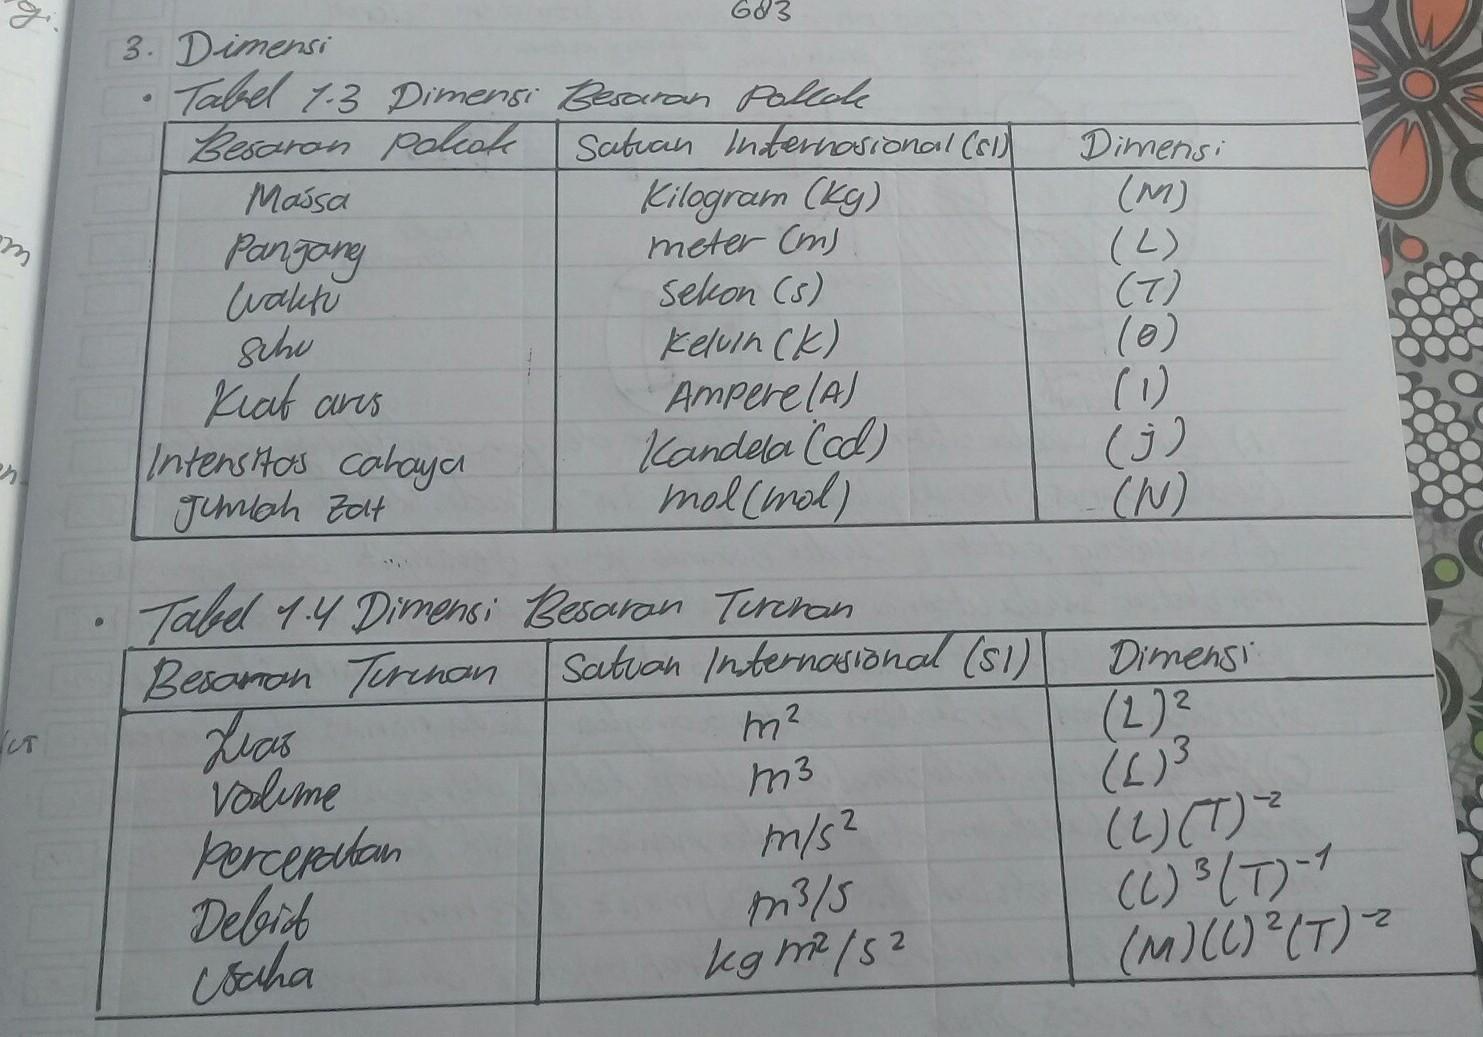 683
3. Dimensi
• Tabel 1.3 Dimensi Besaran Pokok
Besaran Pokok Satuan Internasional (SI) Dimensi
Massa Kilogram (Kg) (M)
Panjang meter (m) (L)
Waktu Sekon (s) (T)
Suhu Kelvin (K) (θ)
Kuat arus Ampere (A) (I)
Intensitas cahaya Kandela (cd) (j)
Jumlah Zat mol (mol) (N)
• Tabel 1.4 Dimensi Besaran Turunan
Besaran Turunan Satuan Internasional (SI) Dimensi
Luas m² (L)²
Volume m³ (L)³
Percepatan m/s² (L)(T)⁻²
Debit m³/s (L)³(T)⁻¹
Usaha kg m²/s² (M)(L)²(T)⁻²